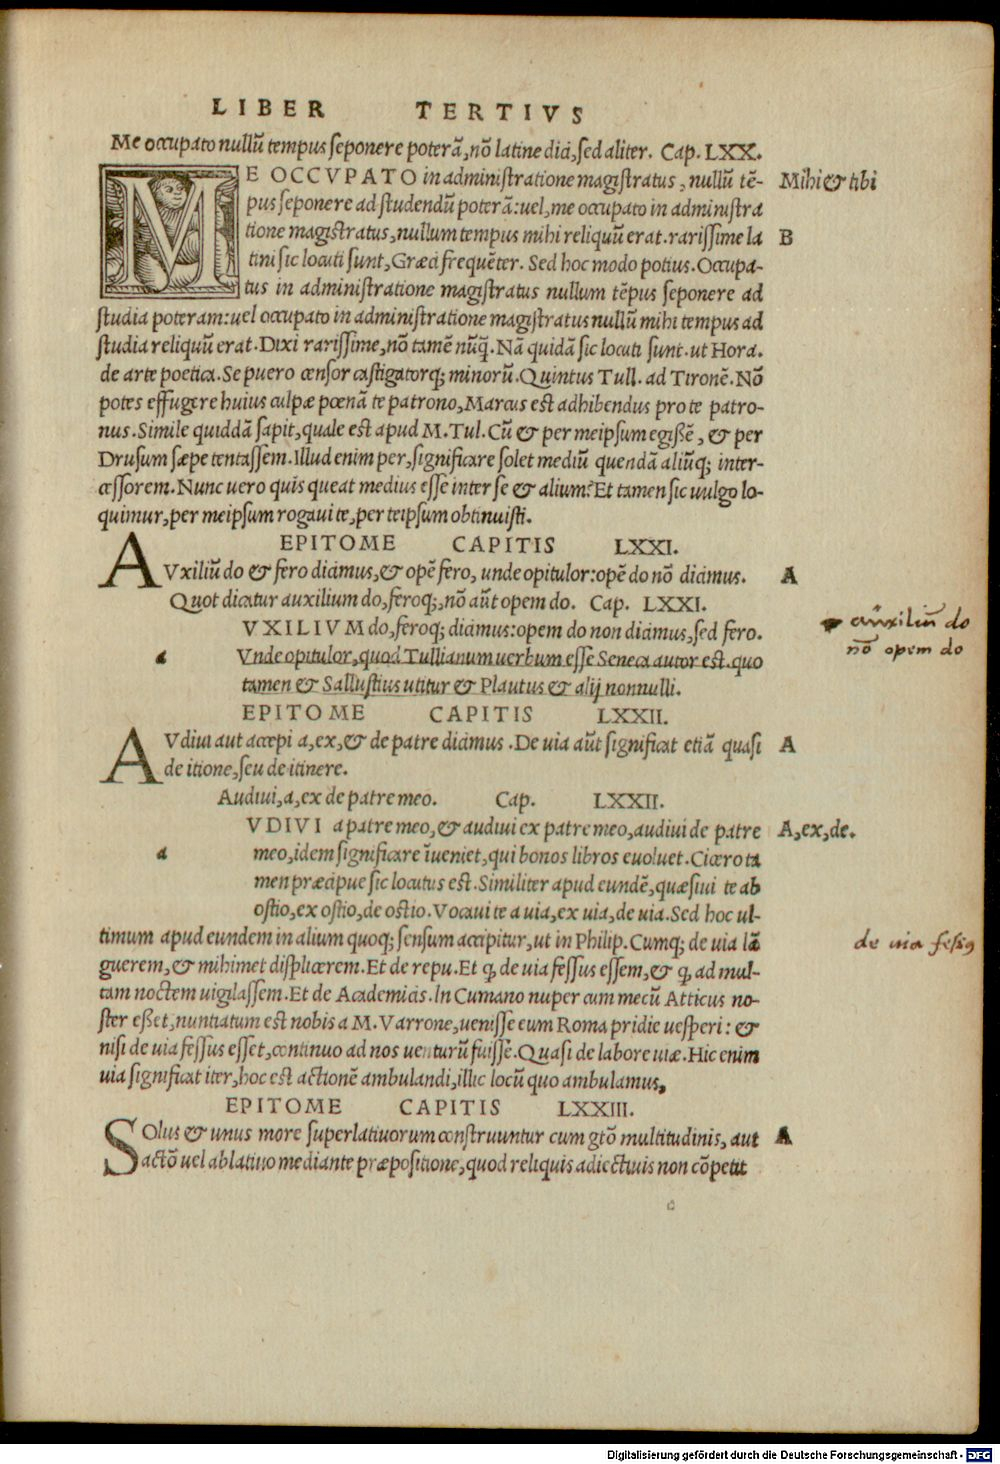 LIBER TERTIVS
Me occupato nullũ tempus seponere poterã, nõ latine dici, sed aliter. Cap. LXX.
ME OCCVPATO in administratione magistratus, nullũ tẽ-
Mihi & tibi
pus seponere ad studendũ poterã: uel, me occupato in administra
tione magistratus, nullum tempus mihi reliquũ erat. rarissime la
B
tini sic locuti sunt, Græci frequẽter. Sed hoc modo potius. Occupa-
tus in administratione magistratus nullum tẽpus seponere ad
studia poteram: uel occupato in administratione magistratus nullũ mihi tempus ad
studia reliquũ erat. Dixi rarissime, nõ tamẽ nũq̃. Nã quidã sic locuti sunt. ut Hora.
de arte poetica. Se puero censor castigatorq; minorũ. Quintus Tull. ad Tironẽ. Nõ
potes effugere huius culpæ pœnã te patrono, Marcus est adhibendus pro te patro-
nus. Simile quiddã sapit, quale est apud M. Tul. Cũ & per meipsum egißẽ, & per
Drusum sæpe tentassem. Illud enim per, significare solet mediũ quendã aliũq; inter-
cessorem. Nunc uero quis queat medius esse inter se & alium? Et tamen sic uulgo lo-
quimur, per meipsum rogaui te, per teipsum obtinuisti.
EPITOME CAPITIS LXXI.
AVxiliũ do & fero dicimus, & opẽ fero, unde opitulor: opẽ do nõ dicimus.
A
Quot dicatur auxilium do, feroq;, nõ aũt opem do. Cap. LXXI.
auxiliũ do
nõ opem do
VXILIVM do, feroq; dicimus: opem do non dicimus, sed fero.
a
Vnde opitulor, quod Tullianum uerbum esse Seneca autor est. quo
tamen & Sallustius utitur & Plautus & alij nonnulli.
EPITOME CAPITIS LXXII.
AVdiui aut accepi a, ex, & de patre dicimus. De uia aũt significat etiã quasi
A
de itione, seu de itinere.
Audiui, a, ex de patre meo. Cap. LXXII.
VDIVI a patre meo, & audiui ex patre meo, audiui de patre
A, ex, de.
a
meo, idem significare ĩueniet, qui bonos libros euoluet. Cicero ta
men præcipue sic locutus est. Similiter apud eundẽ, quæsiui te ab
ostio, ex ostio, de ostio. Vocaui te a uia, ex uia, de uia. Sed hoc ul-
timum apud eundem in alium quoq; sensum accipitur, ut in Philip. Cumq; de uia lã
de uia fessus
guerem, & mihimet displicerem. Et de repu. Et q̃ de uia fessus essem, & q̃ ad mul-
tam noctem uigilassem. Et de Academicis. In Cumano nuper cum mecũ Atticus no-
ster eßet, nuntiatum est nobis a M. Varrone, uenisse eum Roma pridie uesperi: &
nisi de uia fessus esset, continuo ad nos uenturũ fuisse. Quasi de labore uiæ. Hic enim
uia significat iter, hoc est actionẽ ambulandi, illic locũ quo ambulamus,
EPITOME CAPITIS LXXIII.
SOlus & unus more superlatiuorum construuntur cum gtõ multitudinis, aut
A
actõ uel ablatiuo mediante præpositione, quod reliquis adiectiuis non cõpetit
Digitalisierung gefördert durch die Deutsche Forschungsgemeinschaft - DFG